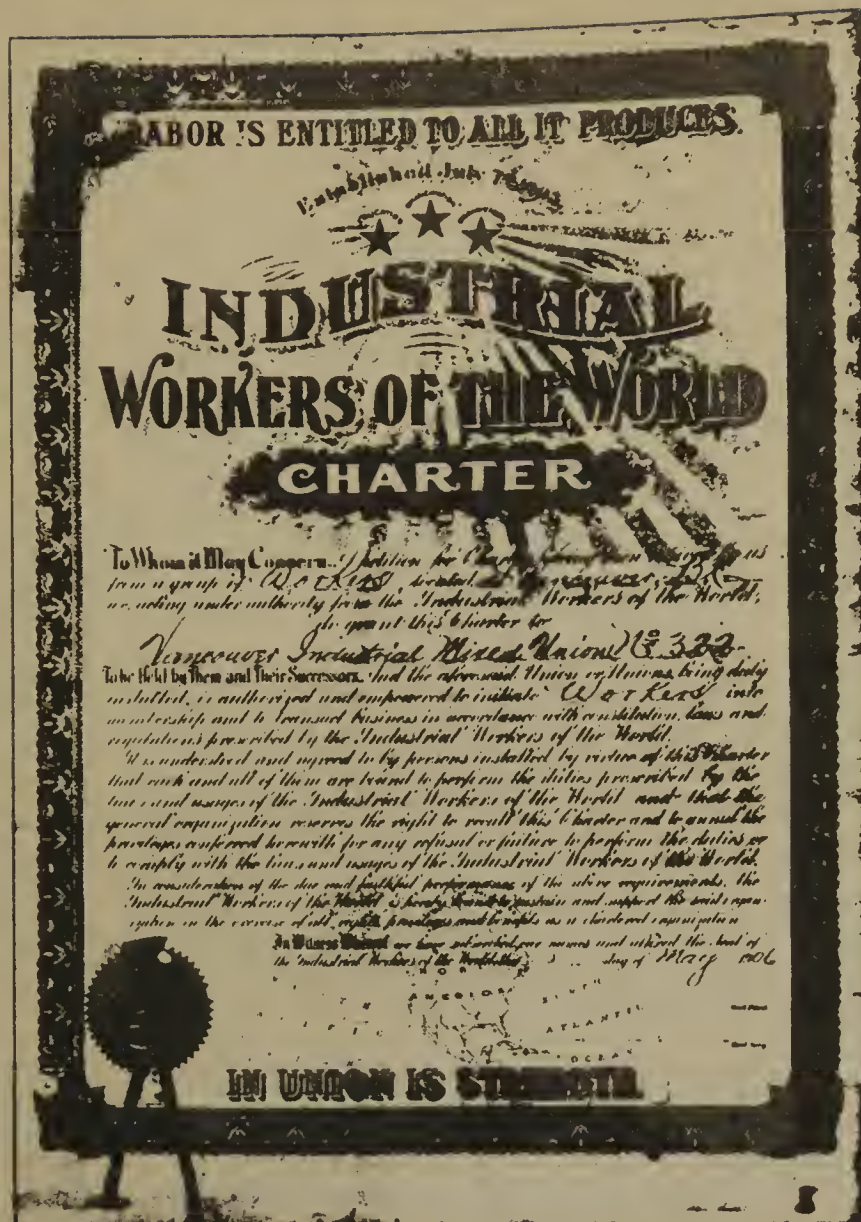 LABOR IS ENTITLED TO ALL IT PRODUCES.
Established July
INDUSTRIAL
WORKERS OF THE WORLD
CHARTER
To Whom it May Concern. A petition for us
from a group of Workers, located at Vancouver, B.C.
we, acting under authority from the Industrial Workers of the World,
do grant this Charter to
Vancouver Industrial Mixed Union No 322
To be Held by Them and Their Successors. And the aforesaid Union or Unions, being duly
installed, is authorized and empowered to initiate Workers into
membership and to transact business in accordance with constitution, laws and
regulations prescribed by the Industrial Workers of the World.
It is understood and agreed to by persons installed by virtue of this Charter
that each and all of them are bound to perform the duties prescribed by the
laws and usages of the Industrial Workers of the World and that the
general organization reserves the right to recall this Charter and to annul the
privileges conferred herewith for any refusal or failure to perform the duties or
to comply with the laws and usages of the Industrial Workers of the World.
In consideration of the due and faithful performance of the above requirements, the
Industrial Workers of the World is hereby bound to sustain and support the said organ-
ization in the exercise of all rights, privileges and benefits as a chartered organization
In Witness Whereof we have subscribed our names and affixed the Seal of
the Industrial Workers of the World this day of May 1906
AMERICA
NORTH
ATLANTIC
OCEAN
IN UNION IS STRENGTH.